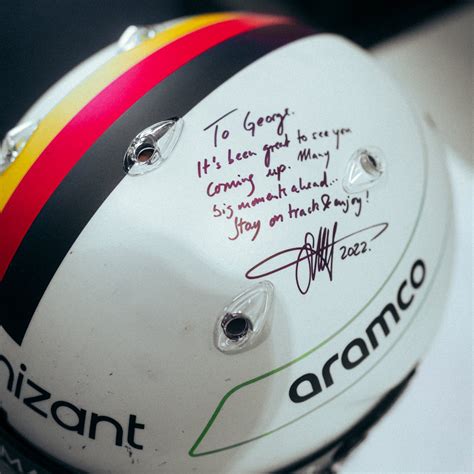 To George.
It's been great to see you
coming up. Many
big moments ahead...
Stay on track & enjoy!
2022.
aramco
nizant